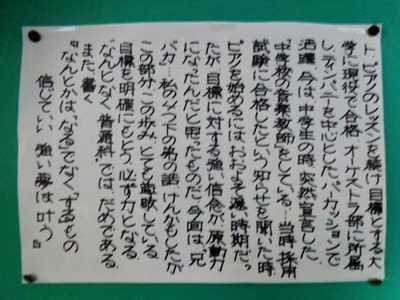 ト、ピアノのレッスンを続け目標とする大
学に現役で合格、オーケストラ部に所属
し、ティンパニーを中心としたパーカッションで
活躍、今は、中学生の時、突然宣言した
「中学校の音楽教師」をしている…当時、採用
試験に合格したという知らせを聞いた時
ピアノを始めるには、おおよそ遅い時期だっ
たが、目標に対する強い信念が、原動力
になったんだと思ったものだ、今回は、〝兄
バカ〟…私の八つ下の弟の話、けんかもしたが
この部分、この歩み、とても尊敬している
目標を明確にもとう、必ず力となる
〝なんとなく普通科〟では、だめである
また、書く
『なんとかは〝なる〟でなく〝する〟もの
信じていい、強い夢は叶う』